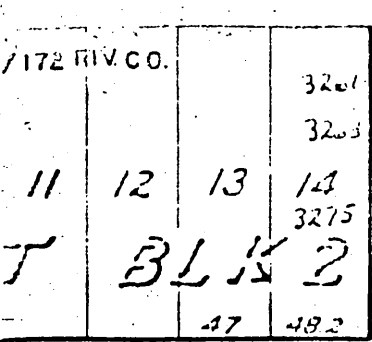 /172 RIV. CO.
3201
3203
11 12 13 14
3275
T BLK 2
47 48.2